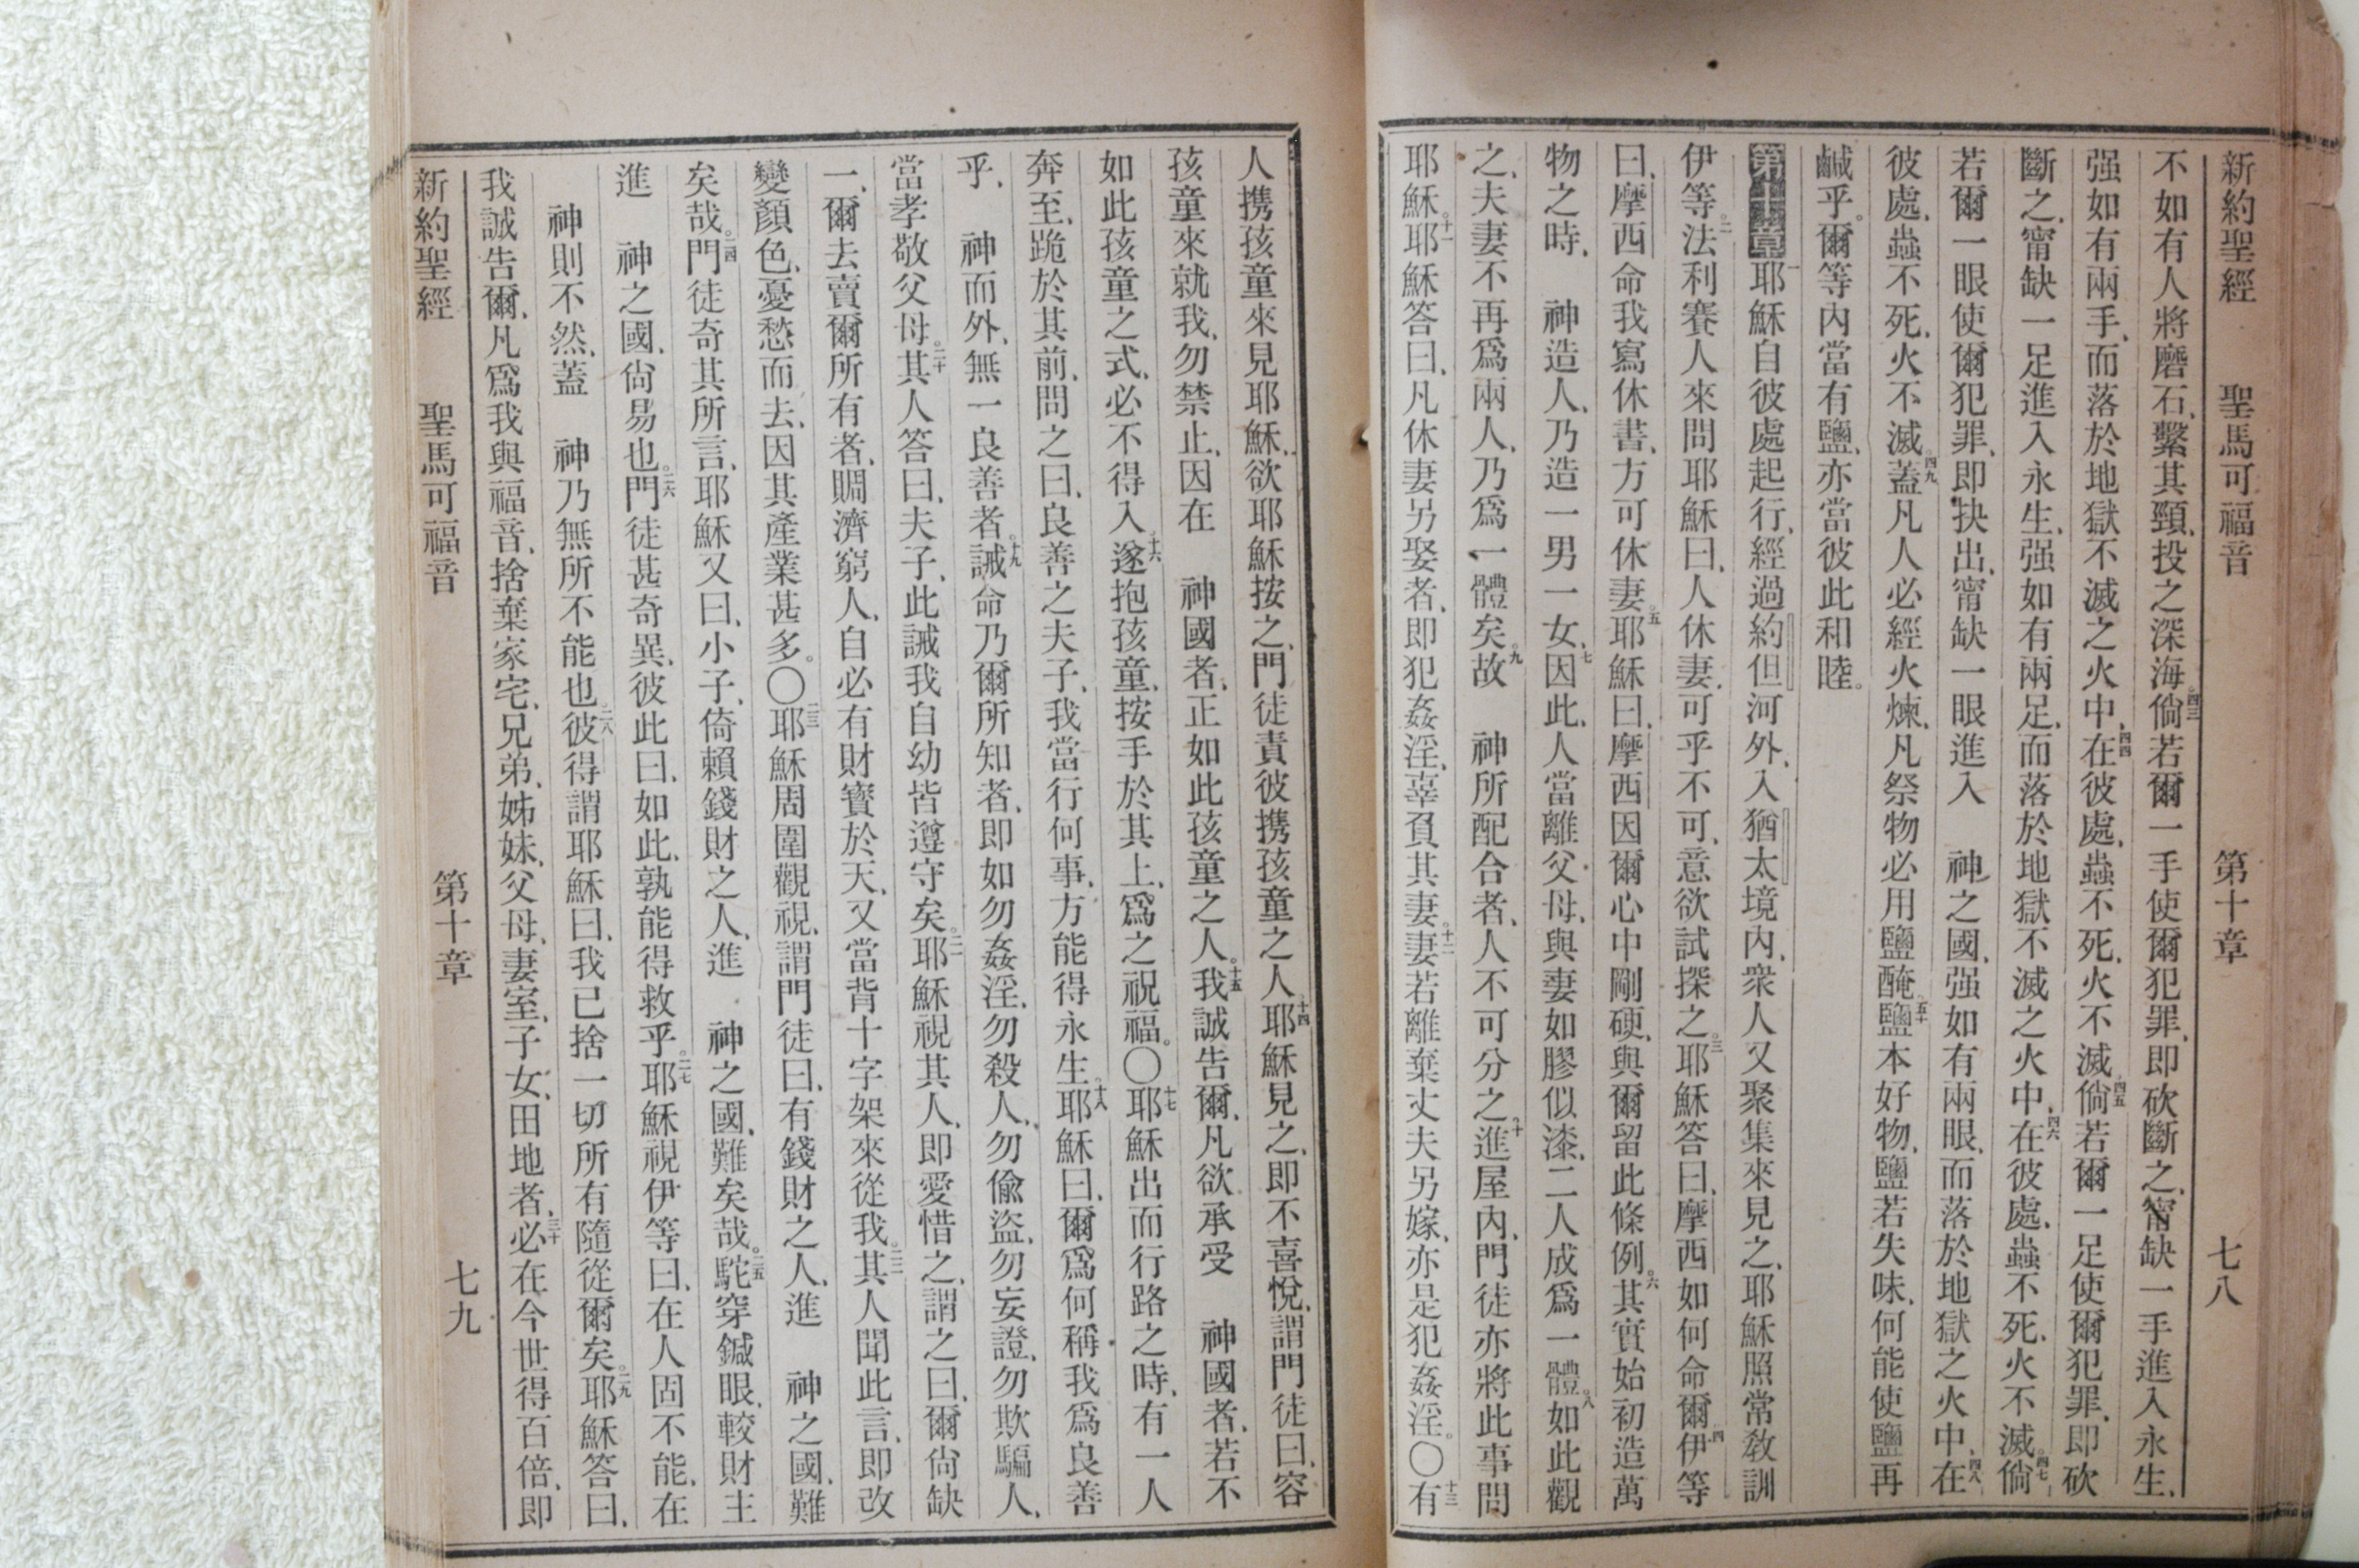 新約聖經　聖馬可福音　第十章　七八
不如有人將磨石、繫其頸、投之深海。四三倘若爾一手使爾犯罪、即砍斷之、甯缺一手進入永生、
强如有兩手、而落於地獄不滅之火中、四四在彼處、蟲不死、火不滅。四五倘若爾一足使爾犯罪、即砍
斷之、甯缺一足進入永生、强如有兩足、而落於地獄不滅之火中、四六在彼處、蟲不死、火不滅。四七倘
若爾一眼使爾犯罪、即抉出、甯缺一眼進入　神之國、强如有兩眼、而落於地獄之火中、四八在
彼處、蟲不死、火不滅。四九蓋凡人必經火煉、凡祭物必用鹽醃。五十鹽本好物、鹽若失味、何能使鹽再
鹹乎。爾等內當有鹽、亦當彼此和睦。
第十章一耶穌自彼處起行、經過約但河外、入猶太境內、衆人又聚集來見之、耶穌照常教訓
伊等。二法利賽人來問耶穌曰、人休妻、可乎不可、意欲試探之。三耶穌答曰、摩西如何命爾。四伊等
曰、摩西命我寫休書、方可休妻。五耶穌曰、摩西因爾心中剛硬、與爾留此條例。六其實始初造萬
物之時、　神造人、乃造一男一女、七因此、人當離父母、與妻如膠似漆、二人成爲一體。八如此觀
之、夫妻不再爲兩人、乃爲一體矣。九故　神所配合者、人不可分之。十進屋內、門徒亦將此事問
耶穌。十一耶穌答曰、凡休妻另娶者、即犯姦淫、辜負其妻。十二妻若離棄丈夫另嫁、亦是犯姦淫。〇十三有
人携孩童來見耶穌、欲耶穌按之、門徒責彼携孩童之人。十四耶穌見之、即不喜悅、謂門徒曰、容
孩童來就我、勿禁止、因在　神國者、正如此孩童之人。十五我誠告爾、凡欲承受　神國者、若不
如此孩童之式、必不得入。十六遂抱孩童、按手於其上、爲之祝福。〇十七耶穌出而行路之時、有一人
奔至、跪於其前、問之曰、良善之夫子、我當行何事、方能得永生。十八耶穌曰、爾爲何稱我爲良善
乎、　神而外、無一良善者。十九誡命乃爾所知者、即如勿姦淫、勿殺人、勿偸盜、勿妄證、勿欺騙人、
當孝敬父母。二十其人答曰、夫子、此誡我自幼皆遵守矣。二一耶穌視其人、即愛惜之、謂之曰、爾尙缺
一、爾去賣爾所有者、賙濟窮人、自必有財寳於天、又當背十字架來從我。二二其人聞此言、即改
變顏色、憂愁而去、因其產業甚多。〇二三耶穌周圍觀視、謂門徒曰、有錢財之人、進　神之國、難
矣哉。二四門徒奇其所言、耶穌又曰、小子、倚賴錢財之人、進　神之國、難矣哉。二五駝穿鍼眼、較財主
進　神之國、尙易也。二六門徒甚奇異、彼此曰、如此、孰能得救乎。二七耶穌視伊等曰、在人固不能、在
　神則不然、蓋　神乃無所不能也。二八彼得謂耶穌曰、我已捨一切所有隨從爾矣。二九耶穌答曰、
我誠告爾、凡爲我與福音、捨棄家宅、兄弟、姊妹、父母、妻室、子女、田地者、三十必在今世得百倍、即
新約聖經　聖馬可福音　第十章　七九